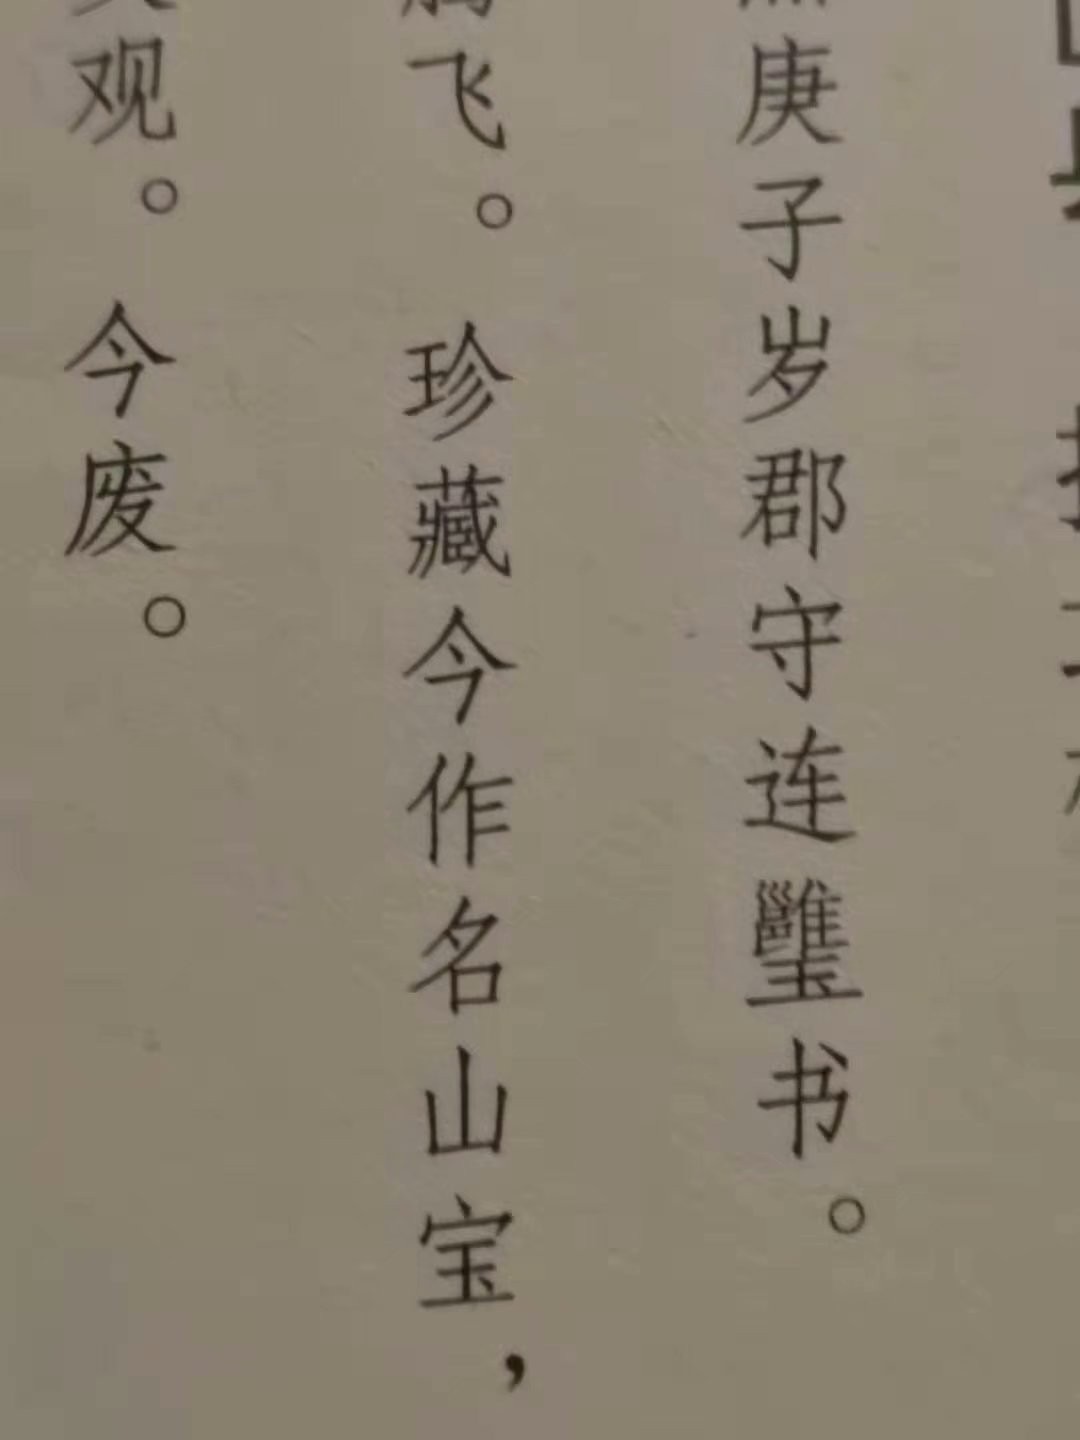 庚子岁郡守连书。
飞。珍藏今作名山宝，
观。今废。